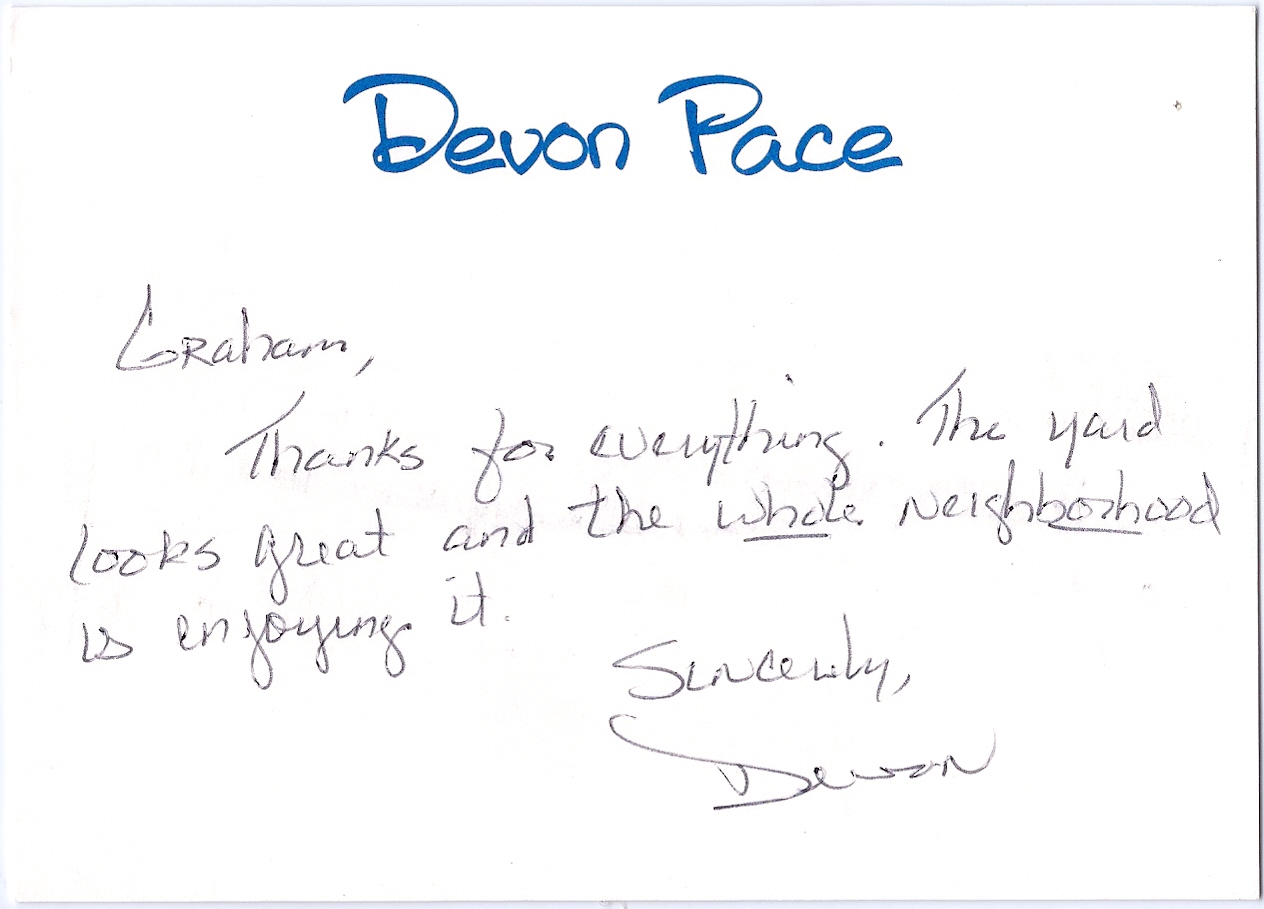 Devon Pace
Graham,
Thanks for everything. The yard
looks great and the whole neighborhood
is enjoying it.
Sincerely,
Devon